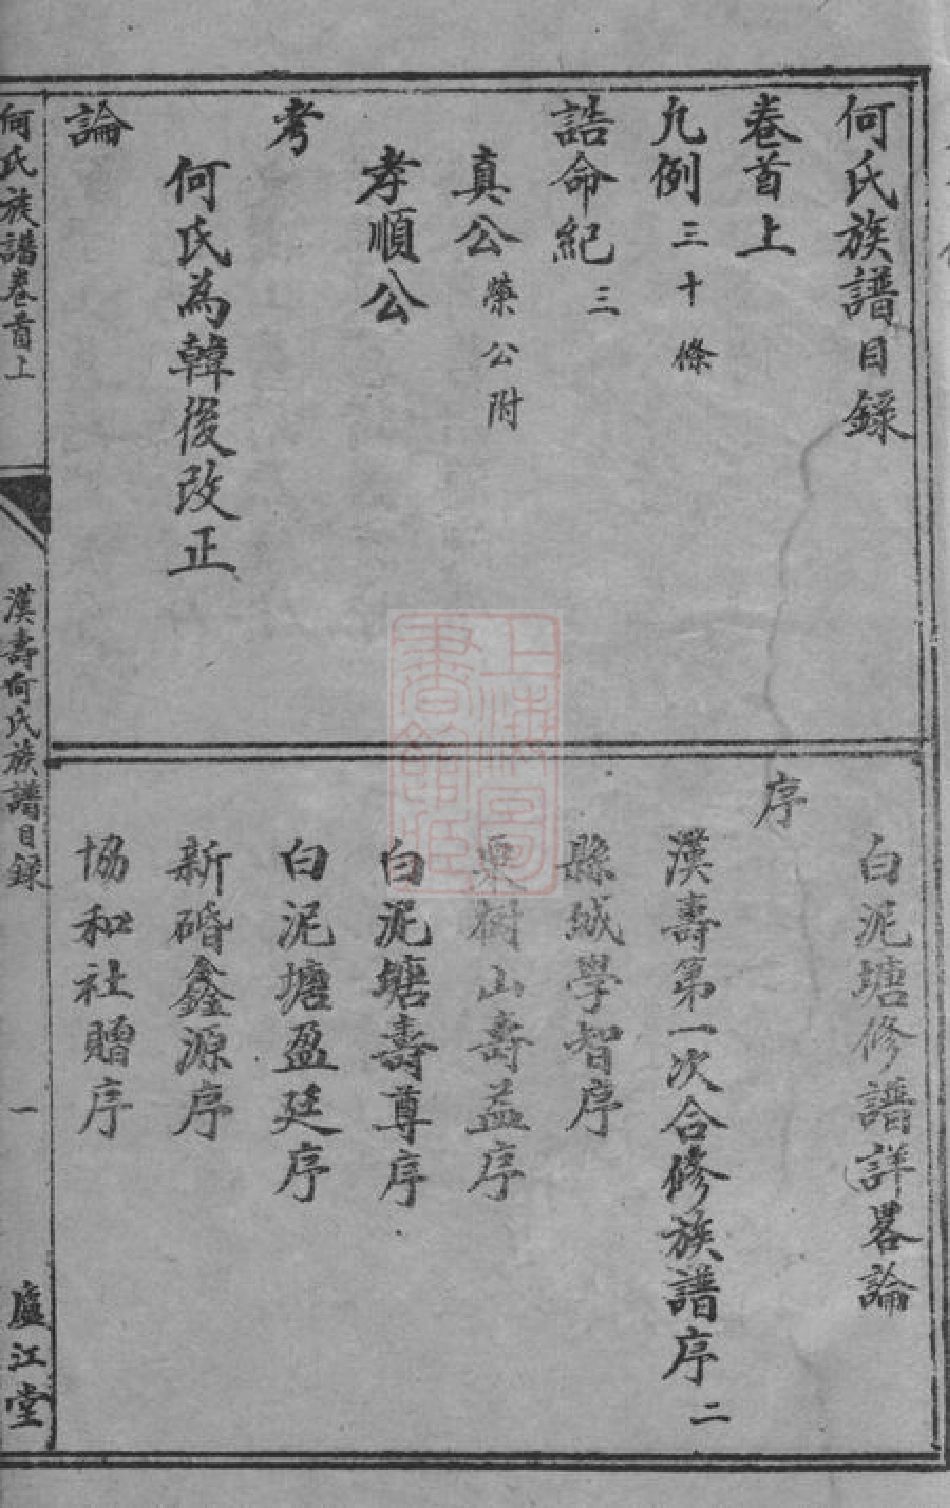 何氏族譜目錄
卷首上
凡例 三十條
誥命紀 三
真公 榮公附
孝順公
考
何氏為韓後改正
論
白泥塘修譜詳畧論
序
漢壽第一次合修族譜序 二
縣城學智序
栗樹山壽益序
白泥塘壽尊序
白泥塘盈廷序
新碈鑫源序
協和社贈序
何氏族譜卷首上
漢壽何氏族譜目錄
一
廬江堂
上海圖
書館